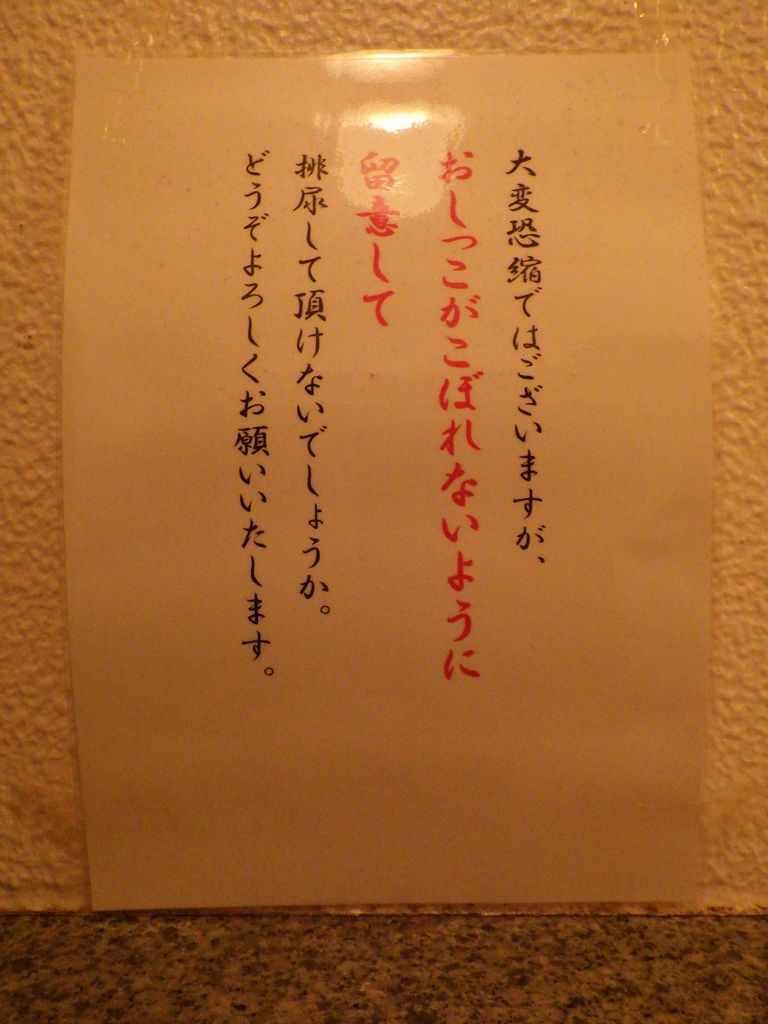 大変恐縮ではございますが、
おしっこがこぼれないように
留意して
排尿して頂けないでしょうか。
どうぞよろしくお願いいたします。